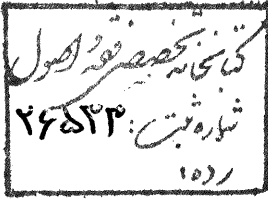 کتابخانه تخصصی فقه و اصول
شماره ثبت: ۲۶۵۳۳
رده: